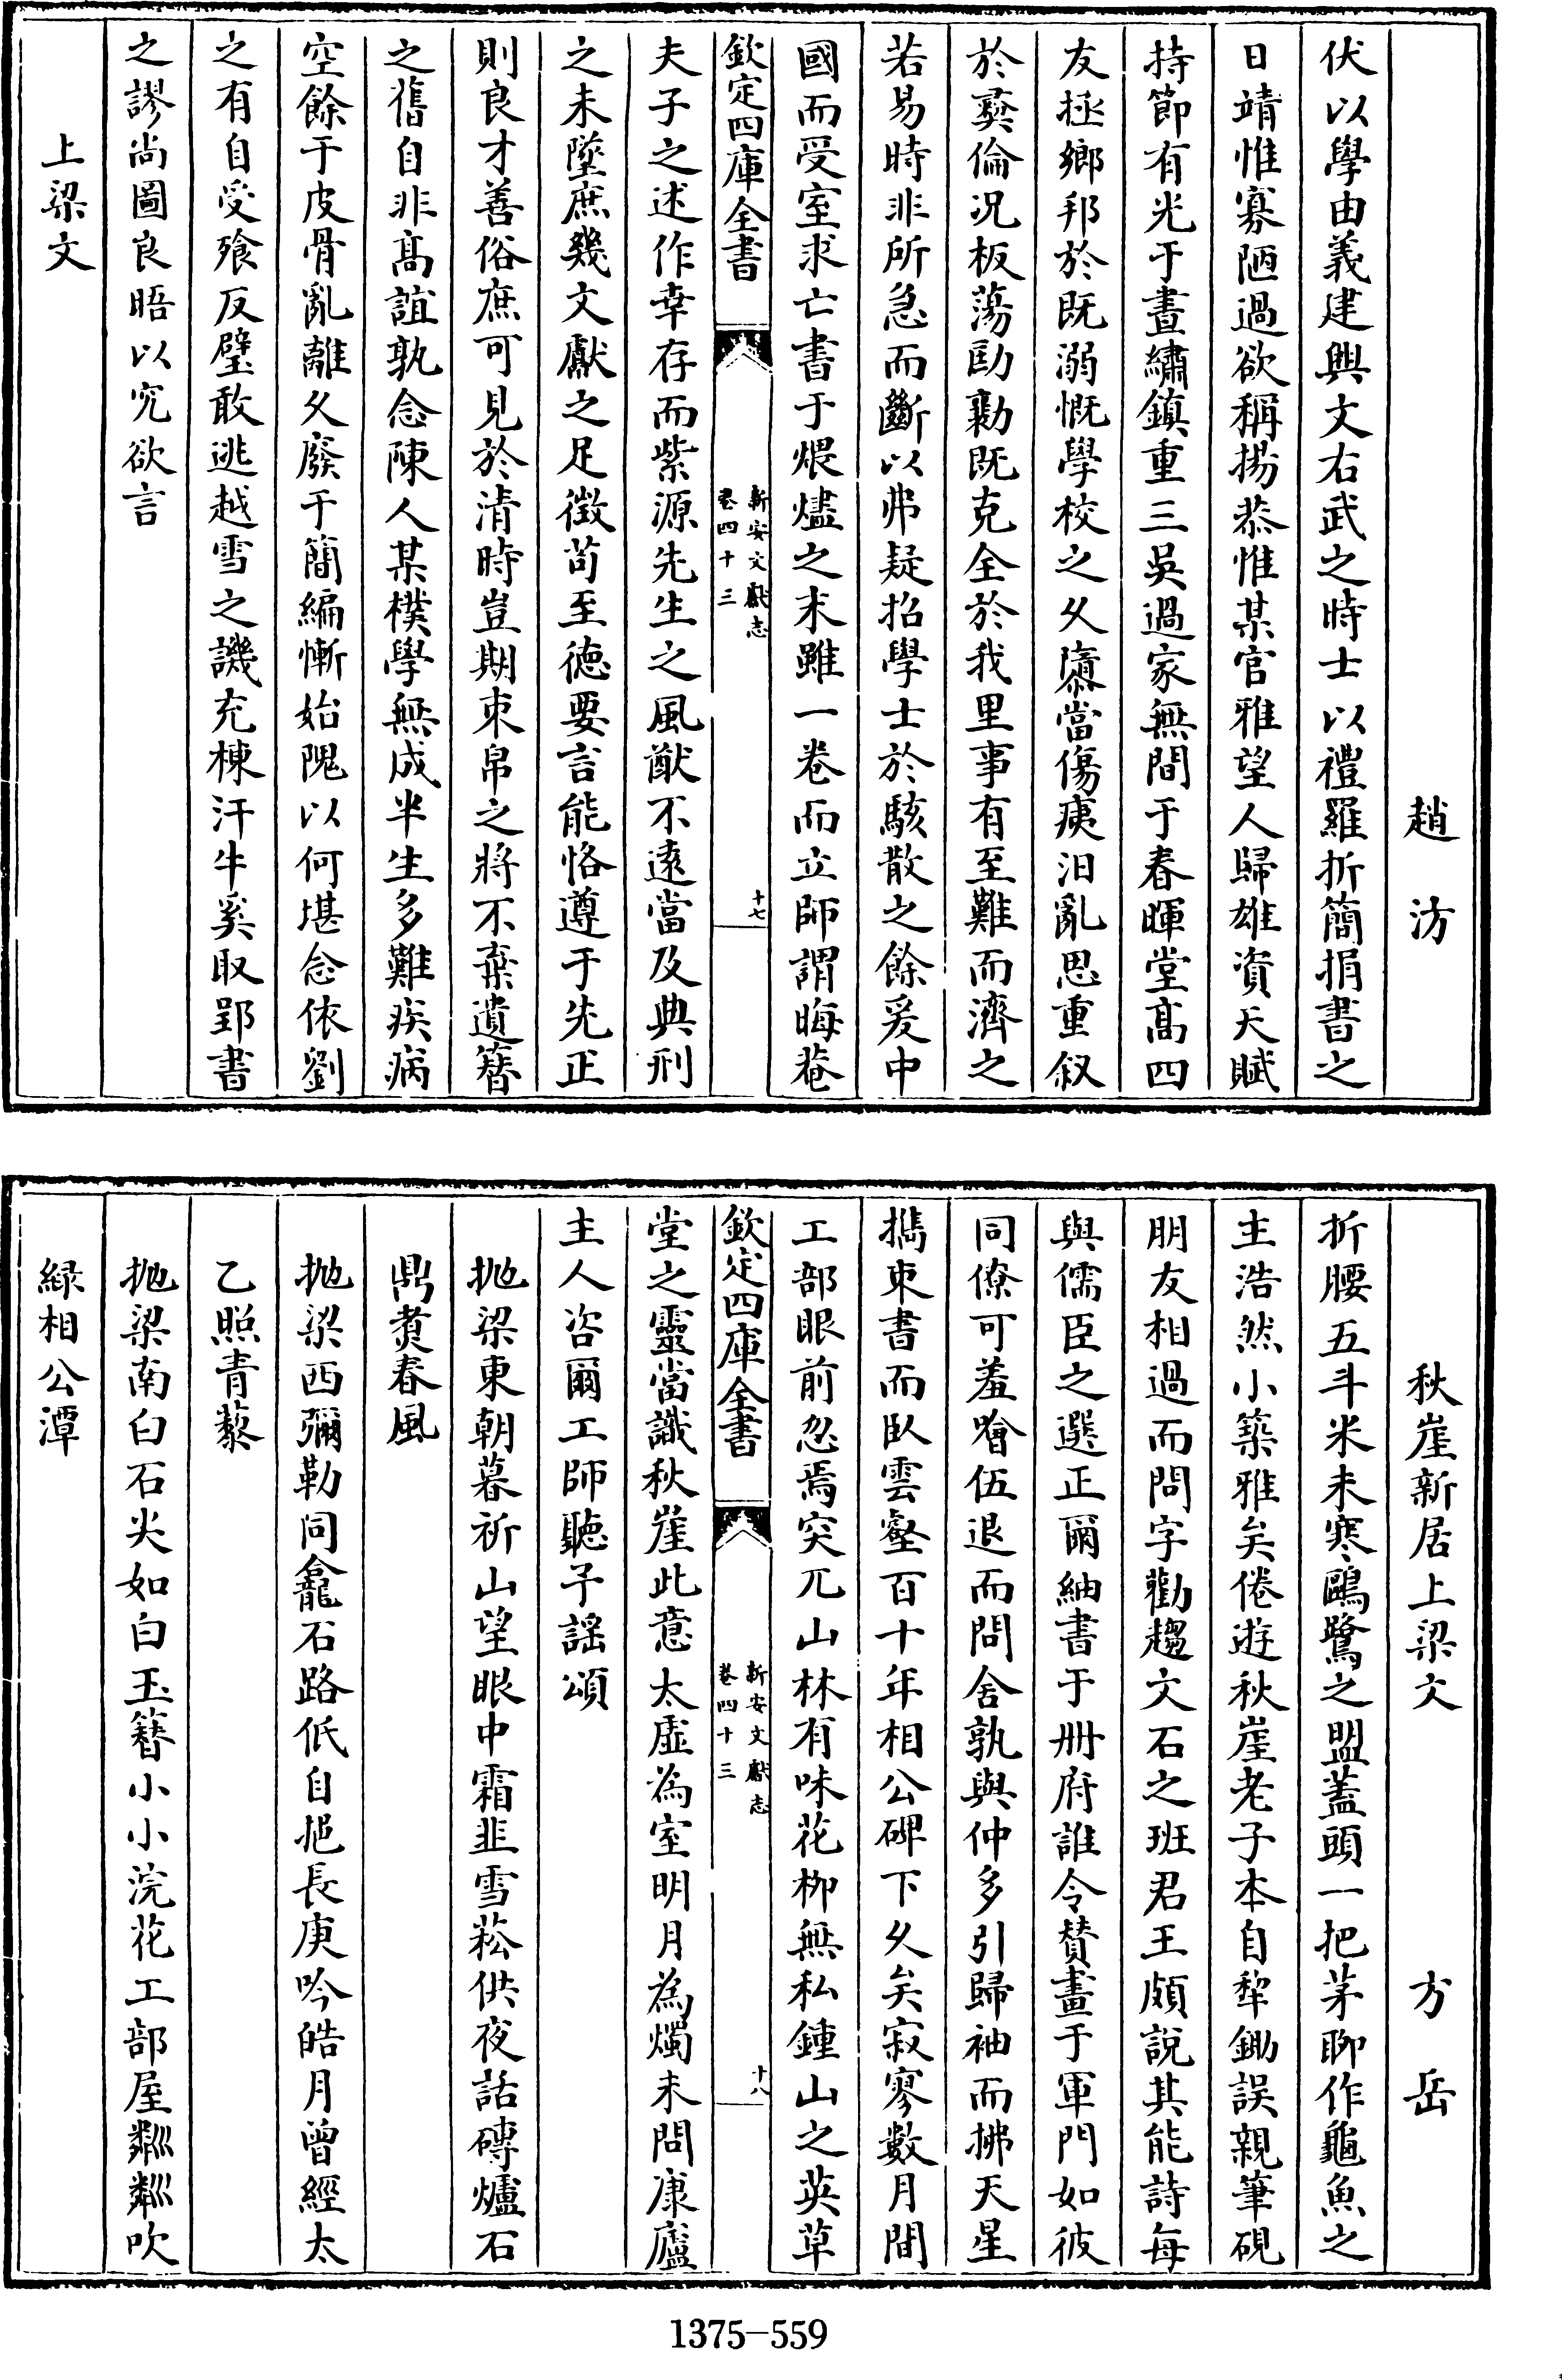 趙汸
伏以學由義建興文右武之時士以禮羅折簡捐書之
日靖惟寡陋過欲稱揚恭惟某官雅望人歸雄資天賦
持節有光于晝繡鎮重三吳過家無間于春暉堂髙四
友拯鄉邦於既溺慨學校之乆隳當傷痍汨亂思重叙
於彛倫况板蕩劻勷既克全於我里事有至難而濟之
若易時非所急而斷以弗疑招學士於駭散之餘爰中
國而受室求亡書于煨燼之末雖一卷而立師謂晦菴
欽定四庫全書
新安文獻志
卷四十三
十七
夫子之述作幸存而紫源先生之風猷不遠當及典刑
之未墜庶幾文獻之足徴苟至徳要言能恪遵于先正
則良才善俗庶可見於清時豈期束帛之將不棄遺簪
之舊自非髙誼孰念陳人某樸學無成半生多難疾病
空餘于皮骨亂離乆廢于簡編慚始隗以何堪念依劉
之有自受飱反璧敢逃越雪之譏充棟汗牛奚取郢書
之謬尚圖良晤以究欲言
上梁文
秋崖新居上梁文
方岳
折腰五斗米未寒鷗鷺之盟蓋頭一把茅聊作龜魚之
主浩然小築雅矣倦遊秋崖老子本自犂鋤誤親筆硯
朋友相過而問字勸趨文石之班君王頗說其能詩每
與儒臣之選正爾紬書于冊府誰令賛畫于軍門如彼
同僚可羞噲伍退而問舍孰與仲多引歸袖而拂天星
攜束書而臥雲壑百十年相公碑下乆矣寂寥數月間
工部眼前忽焉突兀山林有味花柳無私鍾山之英草
欽定四庫全書
新安文獻志
卷四十三
十八
堂之靈當識秋崖此意太虛為室明月為燭未問康廬
主人咨爾工師聽予謡頌
抛梁東朝暮祈山望眼中霜韭雪菘供夜話磚爐石
鼎煑春風
抛梁西彌勒同龕石路低自挹長庚吟皓月曾經太
乙照青藜
抛梁南白石尖如白玉簪小小浣花工部屋粼粼吹
緑相公潭
1375-559